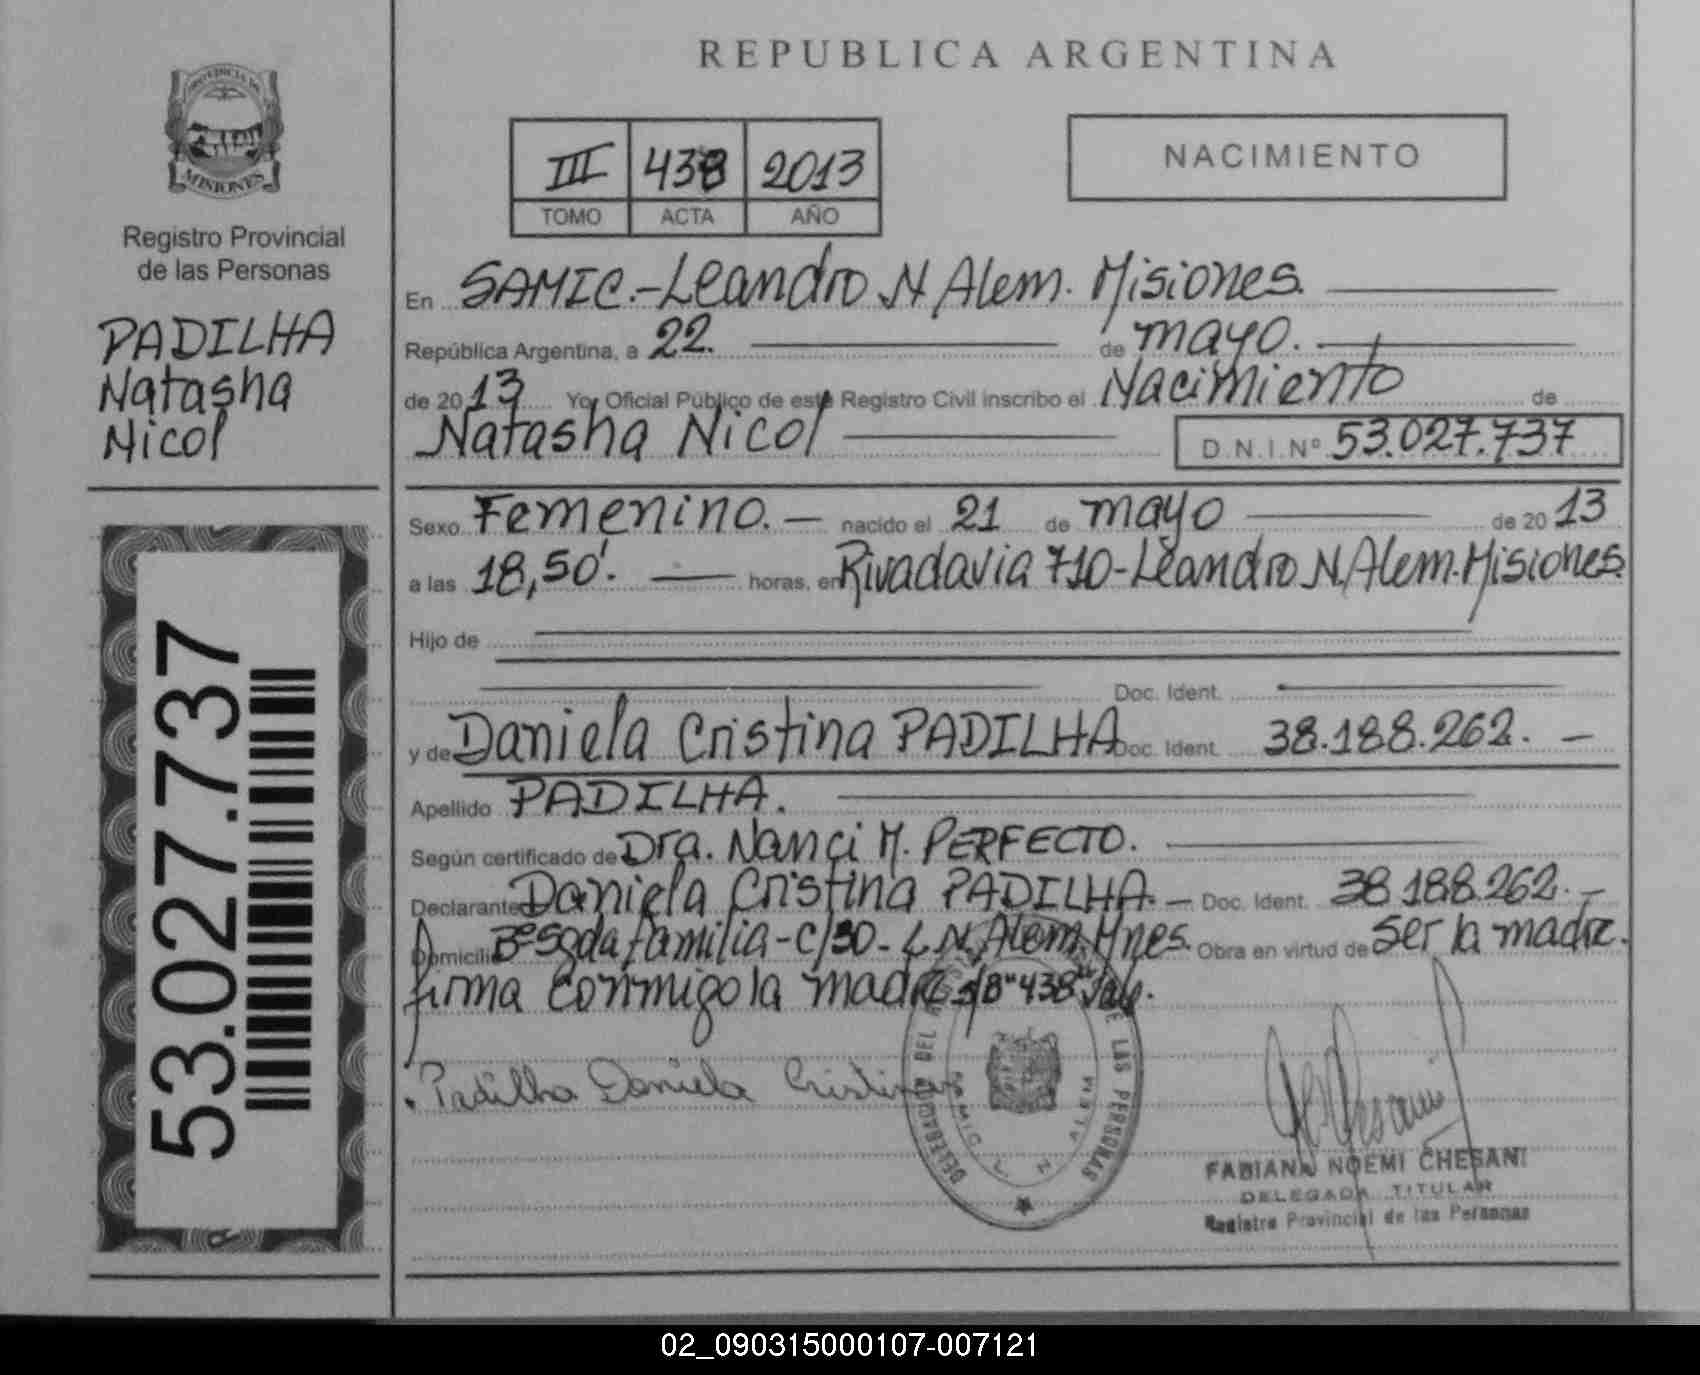 REPUBLICA ARGENTINA
PROVINCIA DE
MISIONES
Registro Provincial
de las Personas
PADILHA
Natasha
Nicol
53.027.737
III 438 2013
TOMO ACTA AÑO
NACIMIENTO
En SAMIC.-Leandro N Alem. Misiones.
República Argentina, a 22. de mayo.
de 2013 Yo, Oficial Público de este Registro Civil inscribo el Nacimiento de
Natasha Nicol D.N.I.Nº 53.027.737
Sexo Femenino. - nacido el 21 de mayo de 2013
a las 18,50'. horas, en Rivadavia 710-Leandro N. Alem. Misiones.
Hijo de
Doc. Ident.
y de Daniela Cristina PADILHA Doc. Ident. 38.188.262. -
Apellido PADILHA.
Según certificado de Dra. Nanci M. PERFECTO.
Declarante Daniela Cristina PADILHA. - Doc. Ident. 38 188.262. -
Domicilio Bº Sgda familia-c/30- L.N. Alem. Mnes. Obra en virtud de ser la madre.
firma conmigo la madre s/B "438" Vale.
Padilha Daniela Cristina
DELEGADO DEL LAS PERSONAS
SAMIC L N ALEM
FABIANA NOEMI CHESANI
DELEGADA TITULAR
Registro Provincial de las Personas
02_090315000107-007121